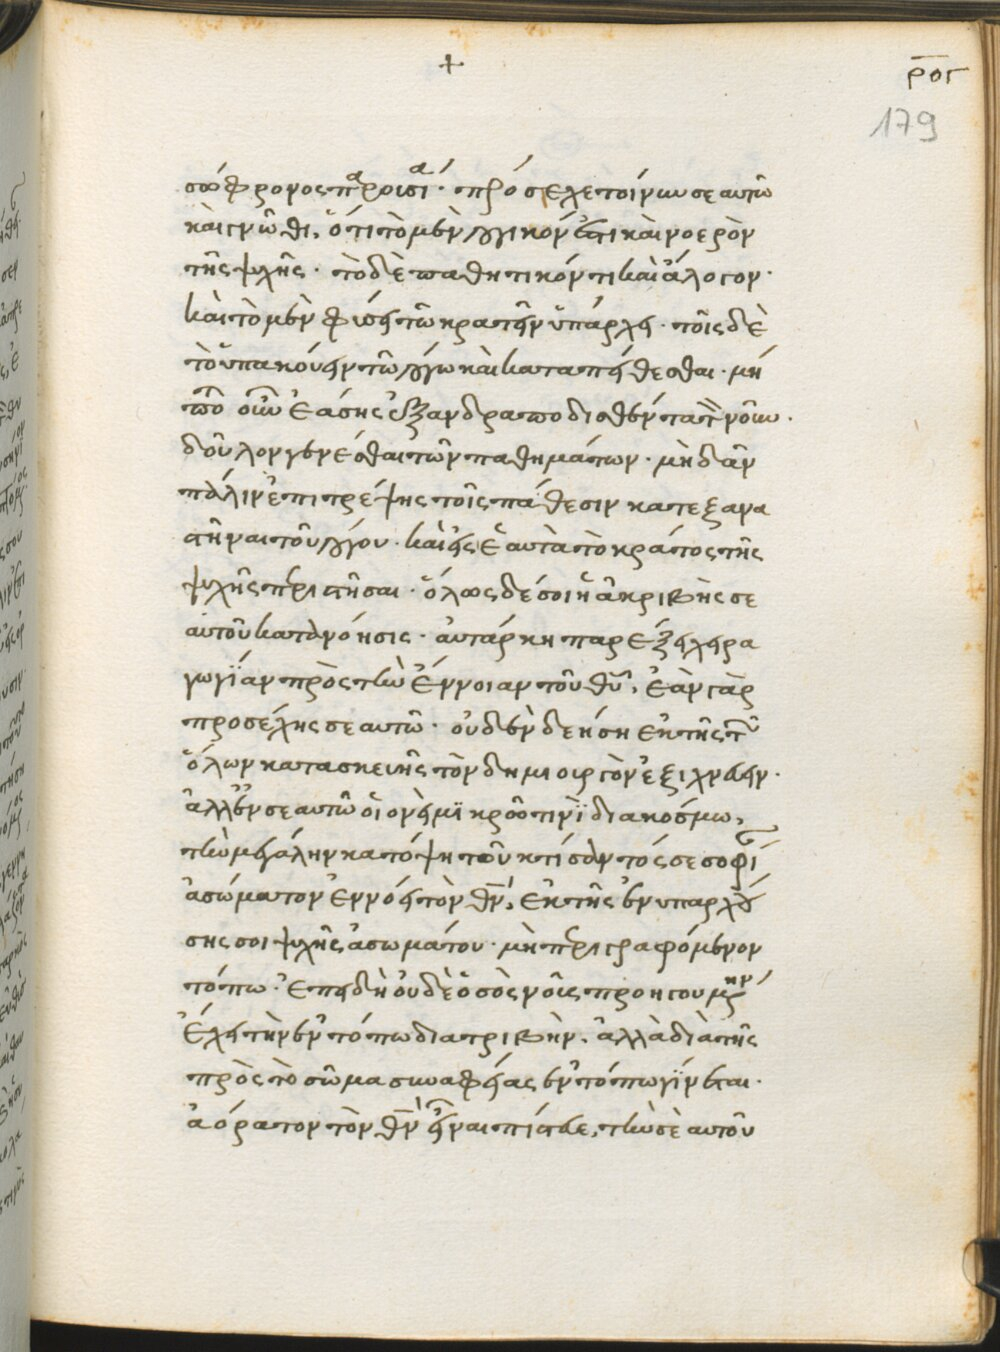 +
ροϛ
179
σώφρονος παρρισία· πρόσεχε τοίνυν σεαυτῶ
καὶ γνῶθι, ὅτι τὸ μὲν λογικόν ἐστι καὶ νοερὸν
τῆς ψυχῆς· τὸ δὲ παθητικόν τι καὶ ἄλογον·
καὶ τὸ μὲν φύσει τῶ κρατεῖν ὑπάρχει· τοῖς δὲ
τὸ ὑπακούειν τῶ λόγω καὶ καταπείθεσθαι· μή
ποτε οὖν ἐάσης ἐξανδραποδισθέντα τὸν νοῦν·
δοῦλον γενέσθαι τῶν παθημάτων· μὴδ' ἂν
πάλιν ἐπιτρέψης τοῖς πάθεσιν κατεξανα
στῆναι τοῦ λόγου· καὶ εἰς ἑαυτὰ τὸ κράτος τῆς
ψυχῆς περιστῆσαι· ὅλως δέ σοι ἡ ἀκριβὴς σε
αυτοῦ κατανόησις· αὐτάρκη παρέξει χειρα
γωγίαν πρὸς τὴν ἔννοιαν τοῦ θυ, ἐὰν γὰρ
προσέχης σεαυτῶ· οὐδὲν δεήση ἐκ τῆς τοῦ
ὅλων κατασκευῆς τὸν δημιουργὸν ἐξιχνεύειν·
ἀλλ' ἐν σεαυτῶ οἱονεὶ μικρῶ τινὶ διακόσμω,
τὴν μεγάλην κατόψη τοῦ κτίσαντός σε σοφί
ἀσώματον ἐννόει τὸν θν, ἐκ τῆς ἐνυπαρχού
σης σοι ψυχῆς ἀσωμάτου· μὴ περιγραφόμενον
τόπω· ἐπειδὴ οὐδὲ ὁ σὸς νοῦς προηγουμένην
ἔχει τὴν ἐν τόπω διατριβήν· ἀλλὰ διὰ τῆς
πρὸς τὸ σῶμα συναφείας ἐν τόπω γίνεται·
ἀόρατον τὸν θν εἶναι πίστευε, τὴν σὲ αυτοῦ